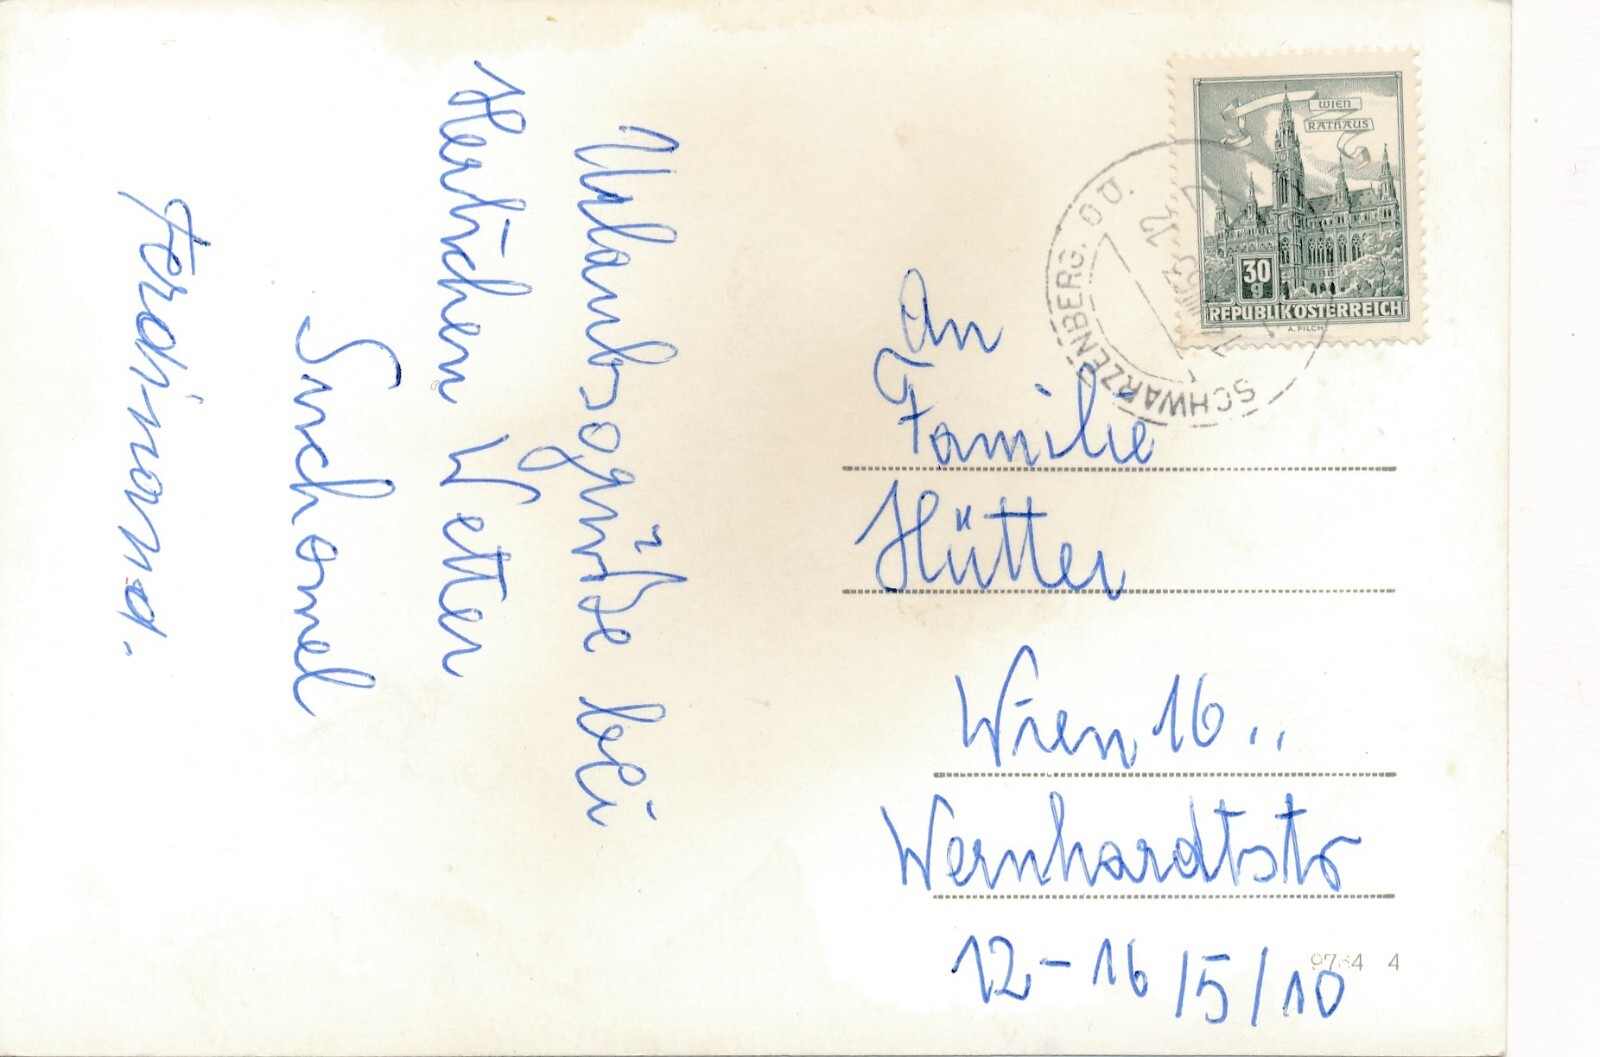 Urlaubsgrüße bei
Herlichen Wetter
Suchomel
Ferdinand.
WIEN
RATHAUS
30
g
REPUBLIK ÖSTERREICH
A. PILCH
SCHWARZENBERG. OÖ.
An
Familie
Hütter
Wien 16..
Wernhardtstr
12-16/5/10